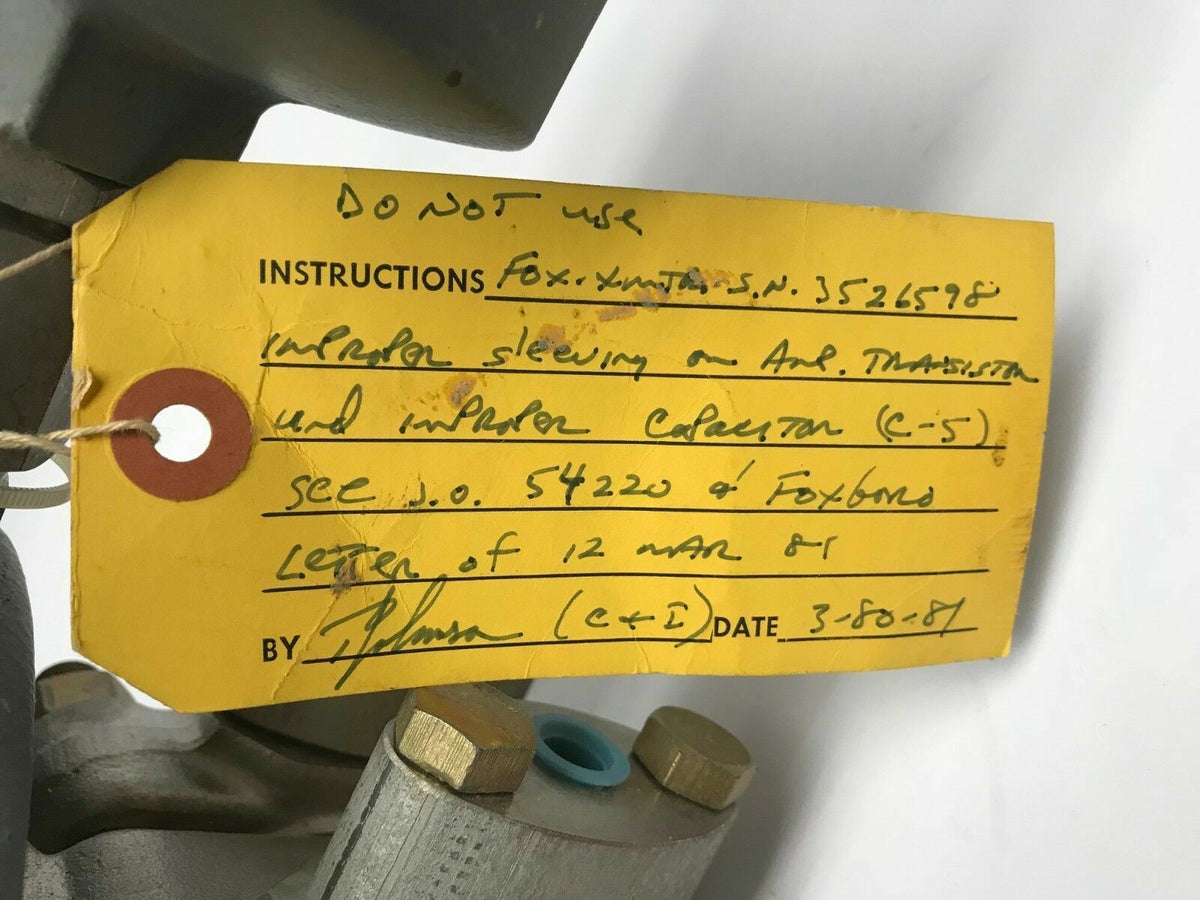 DO NOT use
INSTRUCTIONS Fox. Xmtr. S.N. 3526598
improper sleeving on Aml. TRANSISTOR
and improper capacitor (C-5)
see J.O. 54220 & Foxboro
Letter of 12 MAR 81
BY Johnson (C+I) DATE 3-80-81